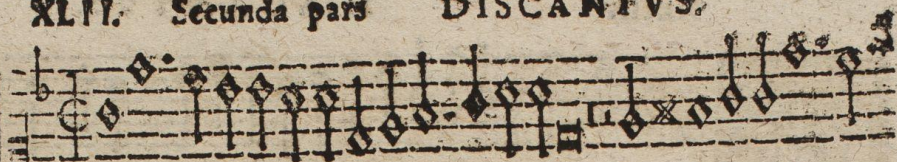 XLII. Secunda pars DISCANTVS.